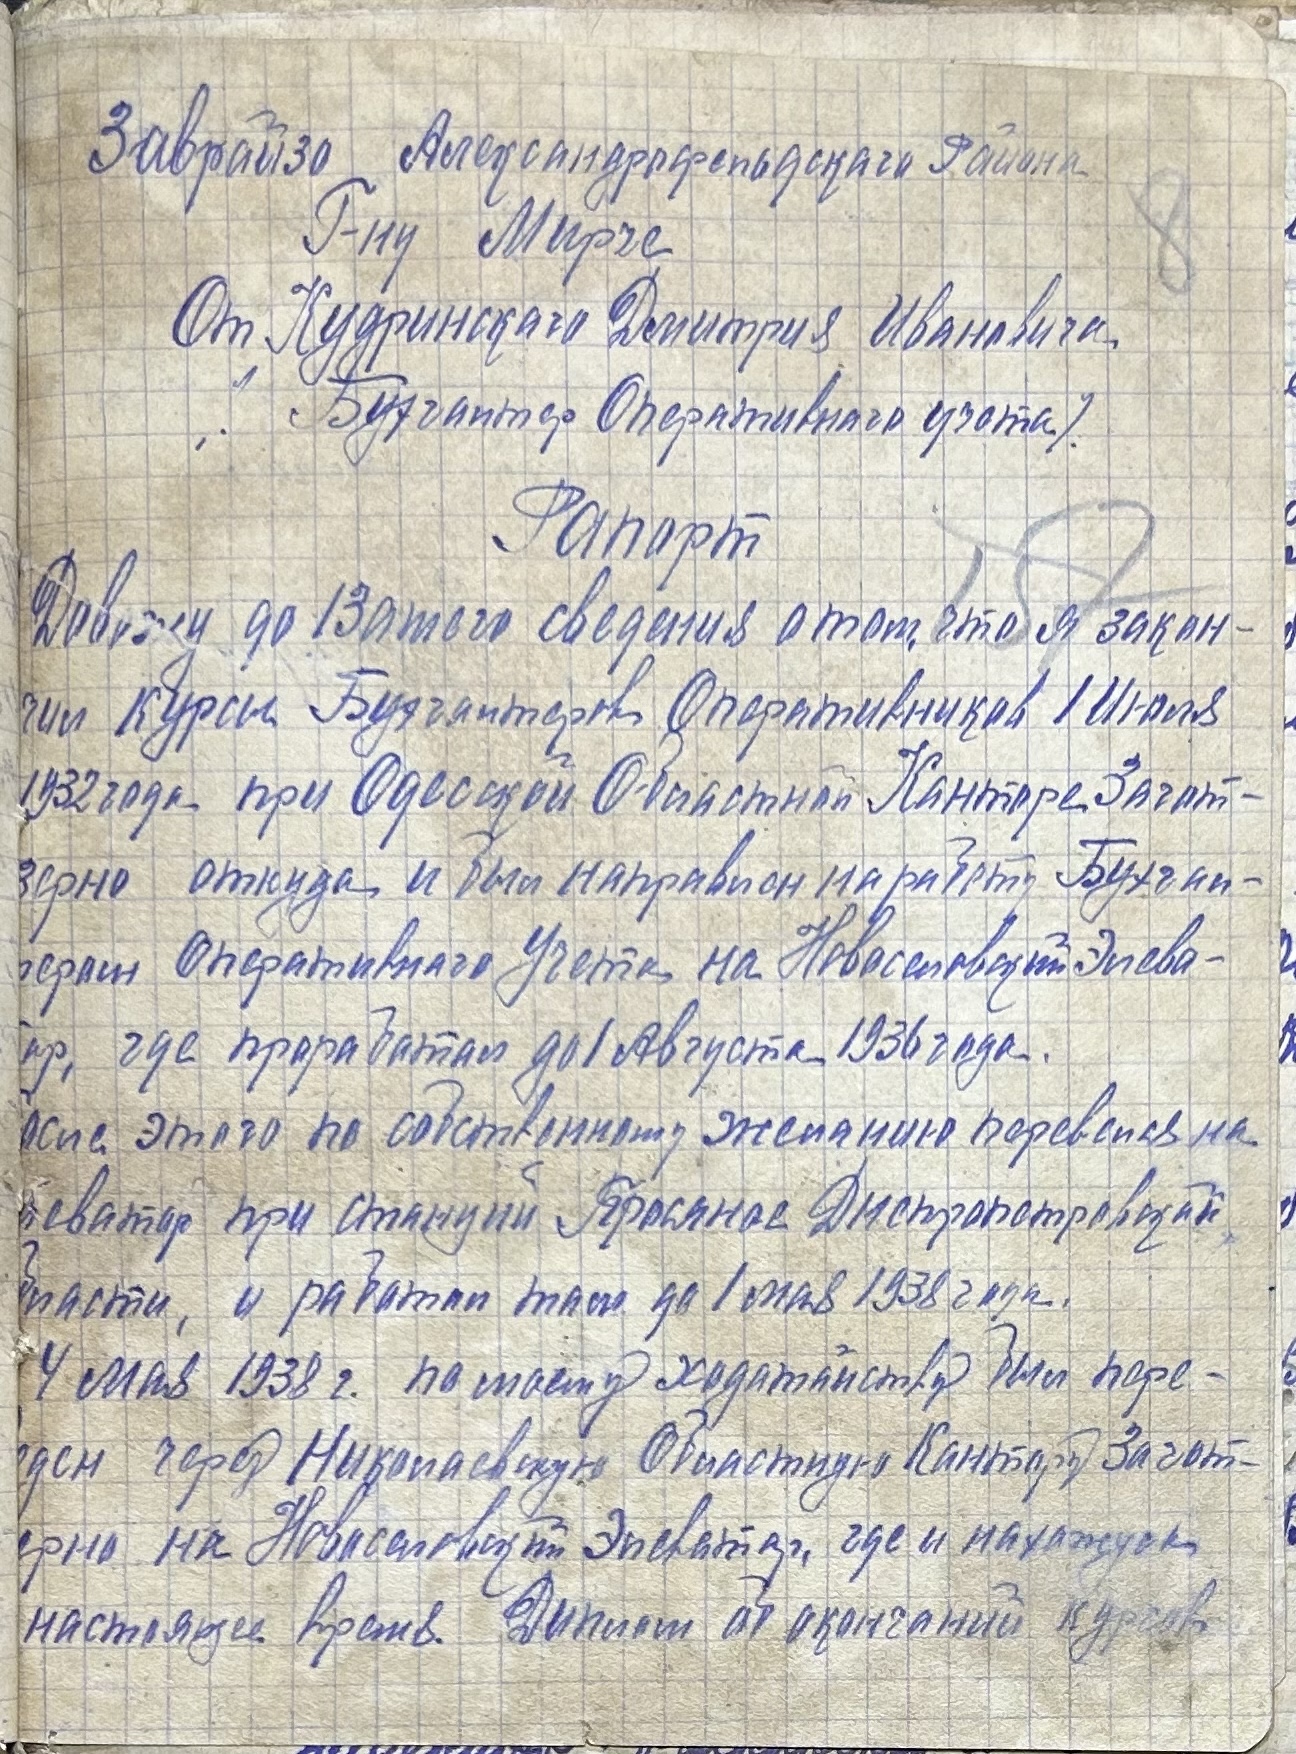 Заврайзо Александрфельдскаго Района
8
Г-ну Мирче
От Кудринскаго Дмитрия Ивановича
/Бухгалтер Оперативнаго учета/.
Рапорт
Довожу до Вашего сведения о том, что я закон-
чил курсы Бухгалтеров Оперативников 1 Июля
1932 года при Одесской Областной Канторе Загот-
зерно откуда и был направлен на работу Бухгал-
тером Оперативнаго Учета на Новоселовский Элева-
ор, где проработал до 1 Августа 1936 года.
осле этого по собственному желанию перевелся на
леватор при станции Просяное Днепропетровской
бласти, и работал там до 1 мая 1938 года.
4 мая 1938 г. по моему ходатайству был пере-
еден через Николаевскую Областную Кантору Загот-
ерно на Новоселовский Элеватор, где и нахожусь
настоящее время. Диплом об окончаний курсов